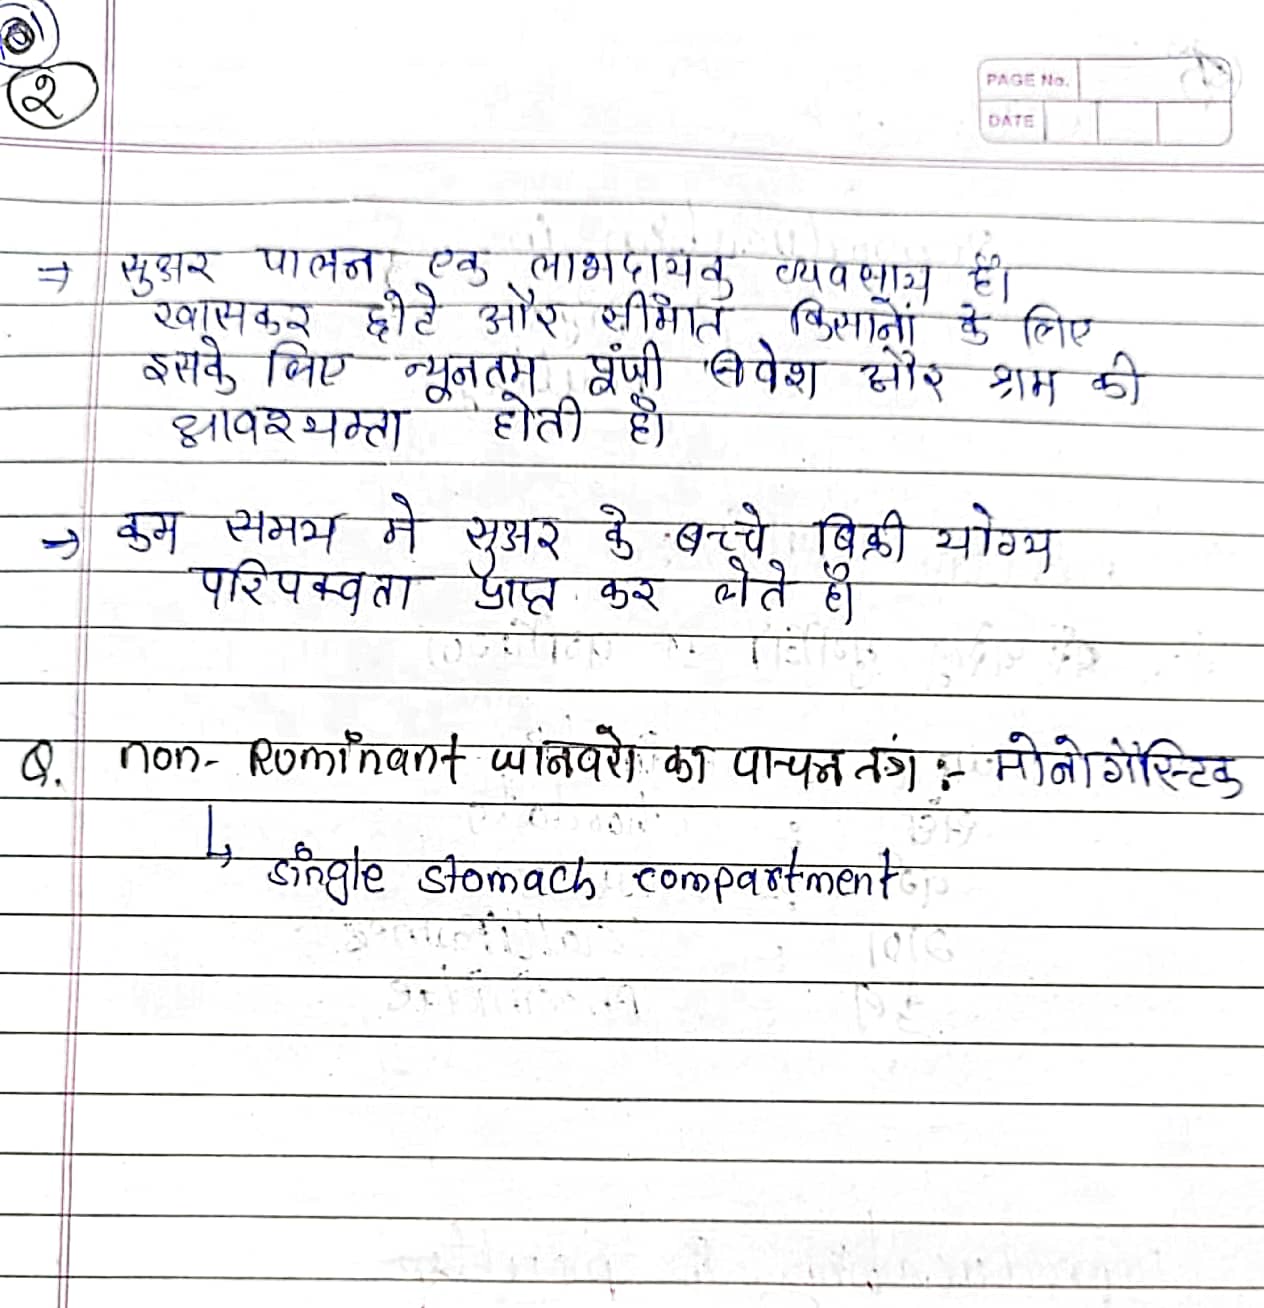 २
PAGE No.
DATE
⇒ सुअर पालन, एक लाभदायक व्यवसाय है।
खासकर छोटे और सीमांत किसानों के लिए
इसके लिए न्यूनतम पूंजी निवेश और श्रम की
आवश्यक्ता होती है।
⇒ कम समय मे सुअर के बच्चे बिक्री योग्य
परिपक्वता प्राप्त कर लेते है।
Q. non- Ruminant जानवरो का पाचन तंत्र :- मोनोगॅस्टिक
↳ single stomach compartment